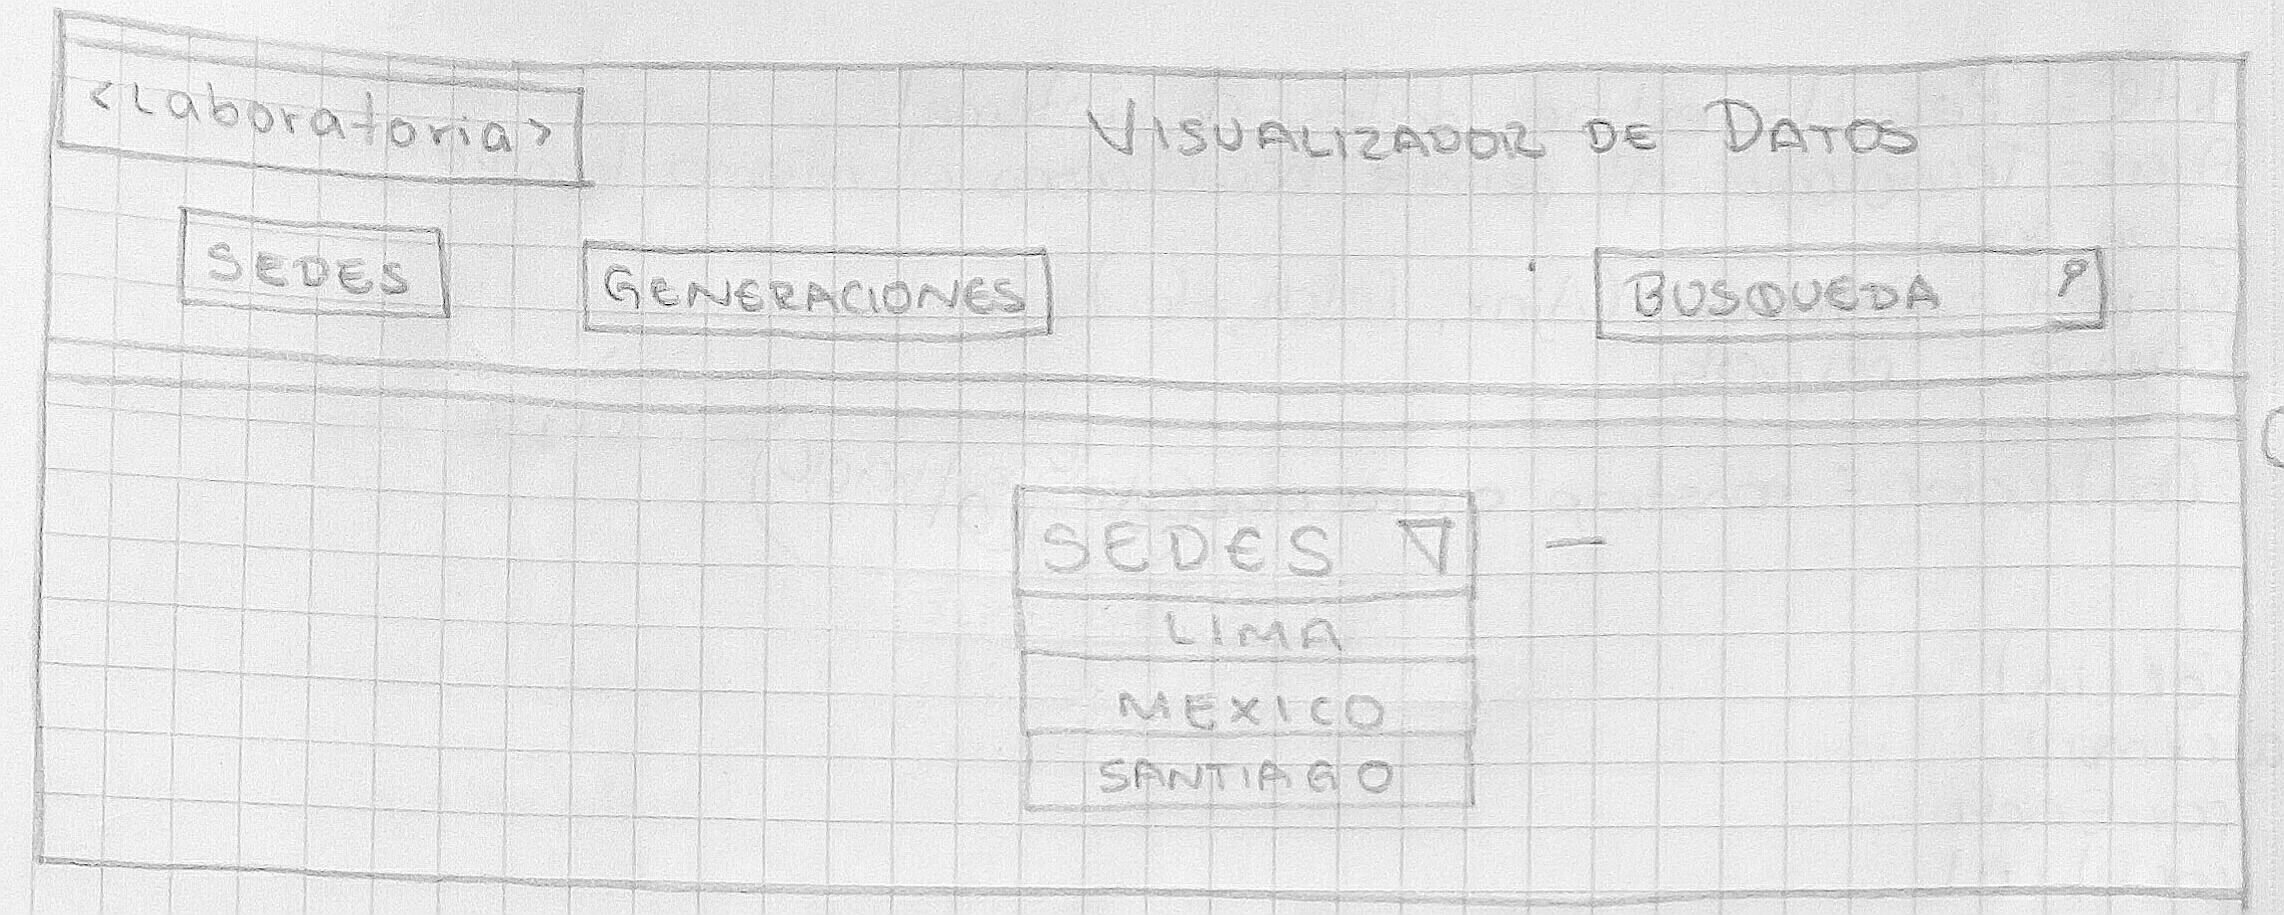 <Laboratoria>
VISUALIZADOR DE DATOS
SEDES
GENERACIONES
BUSQUEDA
SEDES
LIMA
MEXICO
SANTIAGO